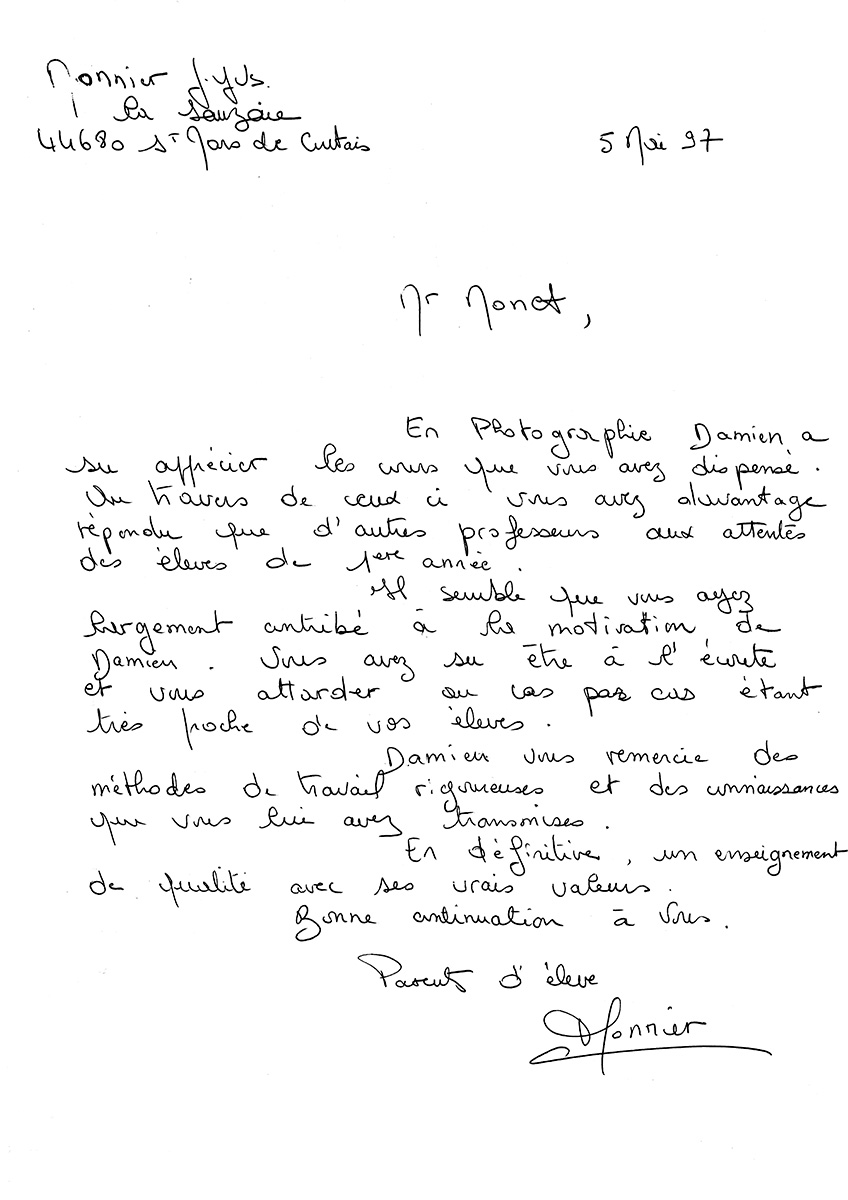 Monnier J.Yves.
1 la Sauzaie
44680 St Mars de Coutais
5 Mai 97
Mr Monet,
En Photographie Damien a
su apprécier les cours que vous avez dispensé.
Au travers de ceux ci vous avez davantage
répondu que d'autres professeurs aux attentes
des élèves de 1ère année.
Il semble que vous ayez
largement contribé à la motivation de
Damien. Vous avez su être à l'écoute
et vous attarder au cas par cas étant
très proche de vos élèves.
Damien vous remercie des
méthodes de travail rigoureuses et des connaissances
que vous lui avez transmises.
En définitive, un enseignement
de qualité avec ses vrais valeurs.
Bonne continuation à Vous.
Parents d'élève
Monnier